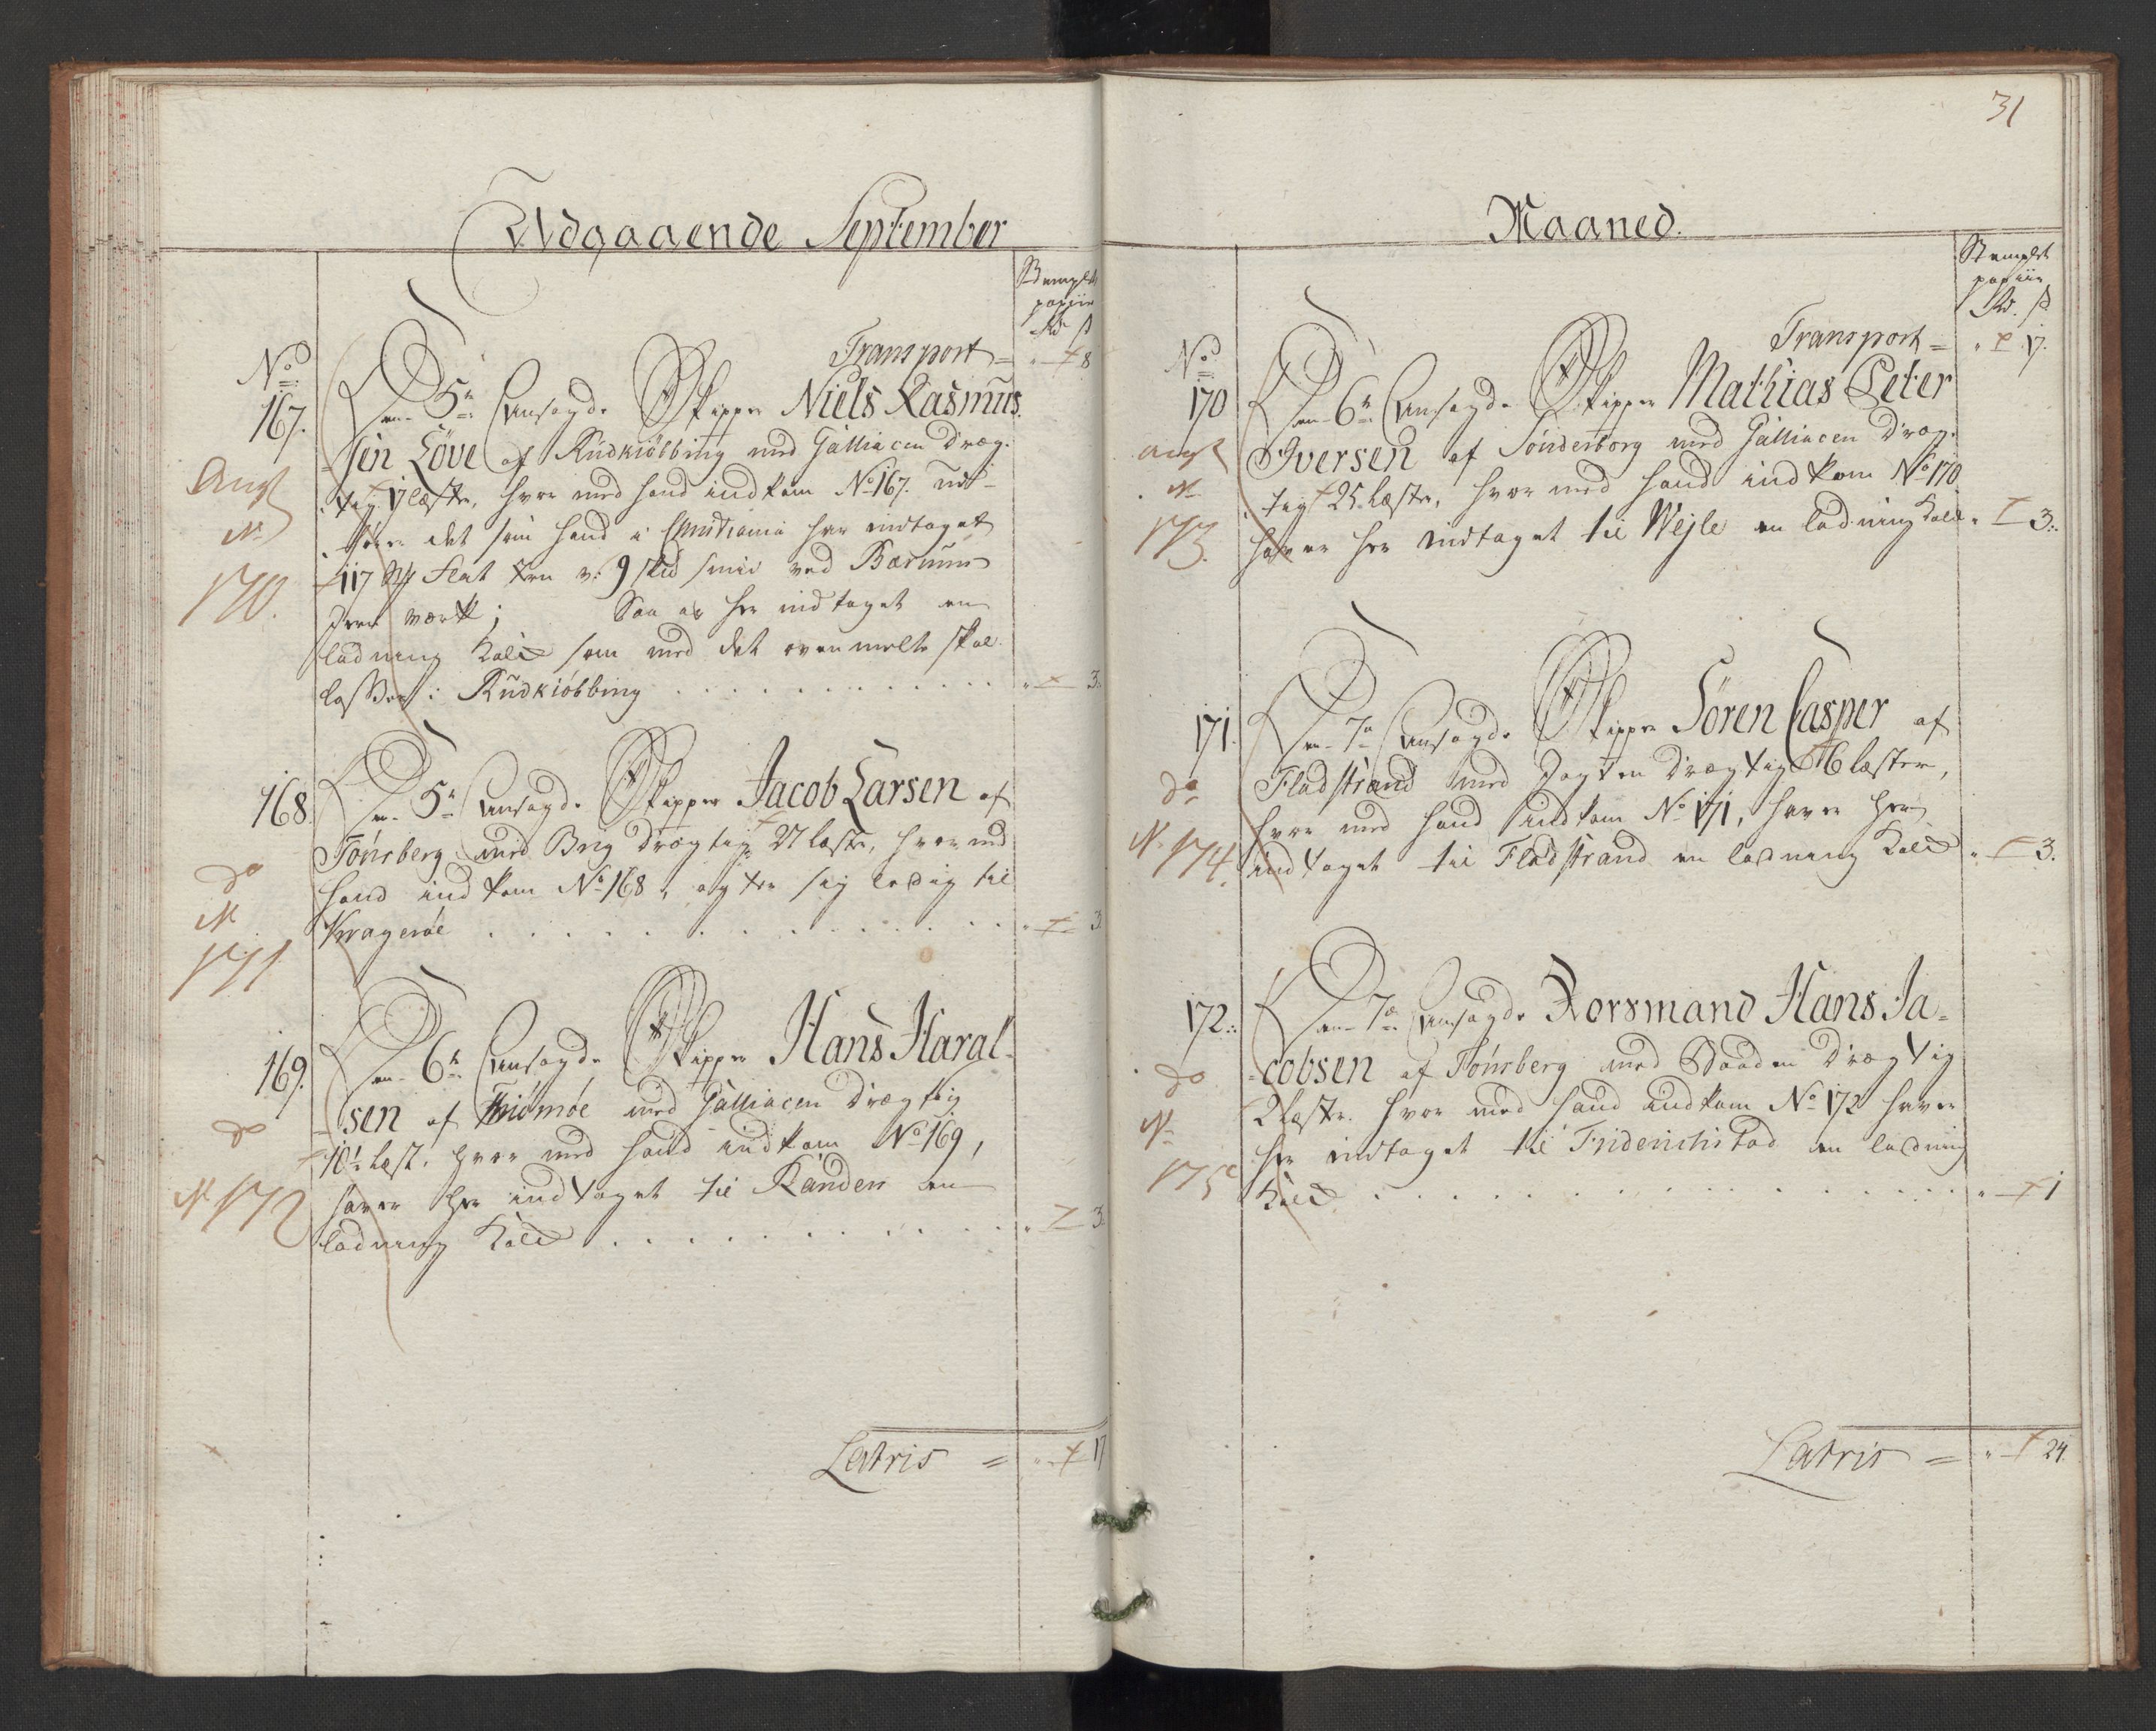 Udgaaende September
Stemplt
papiir
Rd ß
Transport = " + 8
No
167. Den 5te Ansagde Skipper Niels Rasmus
sen Löve af Rudkiöbbing med Galliacen Dræg-
tig 17 læster, hvor med hand indkom No 167. ud
fører det som hand i Christiania har indtaget
117 Flat Fern v: 9 smid ved Bærums
Jern værk; Saa og her indtaget en
ladning Kalk som med det ovenmelte skal
losses i Rudkiöbbing . . . " + 3.
Angl
No
170.
168. Den 5te Ansagde Skipper Jacob Larsen af
Tönsberg med Brig Drægtig 27 læster, hvor med
hand indkom No 168, agter sig ledig til
Kragerøe . . . " + 3
do
No
171
169. Den 6te Ansagde Skipper Hans Haral-
sen af Thiömöe med Galliacen Drægtig
10½ læst. hvor med hand indkom No 169,
haver her indtaget til Randers en
ladning Kalk . . . " + 3.
do
No 172
Latris = " + 17
31
Maaned.
Stemplet
papiir
Rd. ß
Transport = " + 17.
No
170 Den 6te Ansagde Skipper Mathias Peter
Iversen af Sönderborg med Galliacen Dræg-
tig 25. læster, hvor med hand indkom No 170
haver her indtaget til Wejle en ladning Kalk " + 3.
Angl
No
173.
171. Den 7de Ansagde Skipper Sören Casper af
Fladstrand med Jagten Drægtig 16 læster,
hvor med hand indkom No 171, haver her
indtaget til Fladstrand en ladning Kalk " + 3.
do
No 174.
172. Den 7de Ansagde Norsmand Hans Ja-
cobsen af Tönsberg med Baaden Drægtig
2 læster. hvor med hand indkom No 172 haver
her indtaget til Friderichstad en ladning
Kalk . . . " + 1
do
No
175
Latris = " + 24.